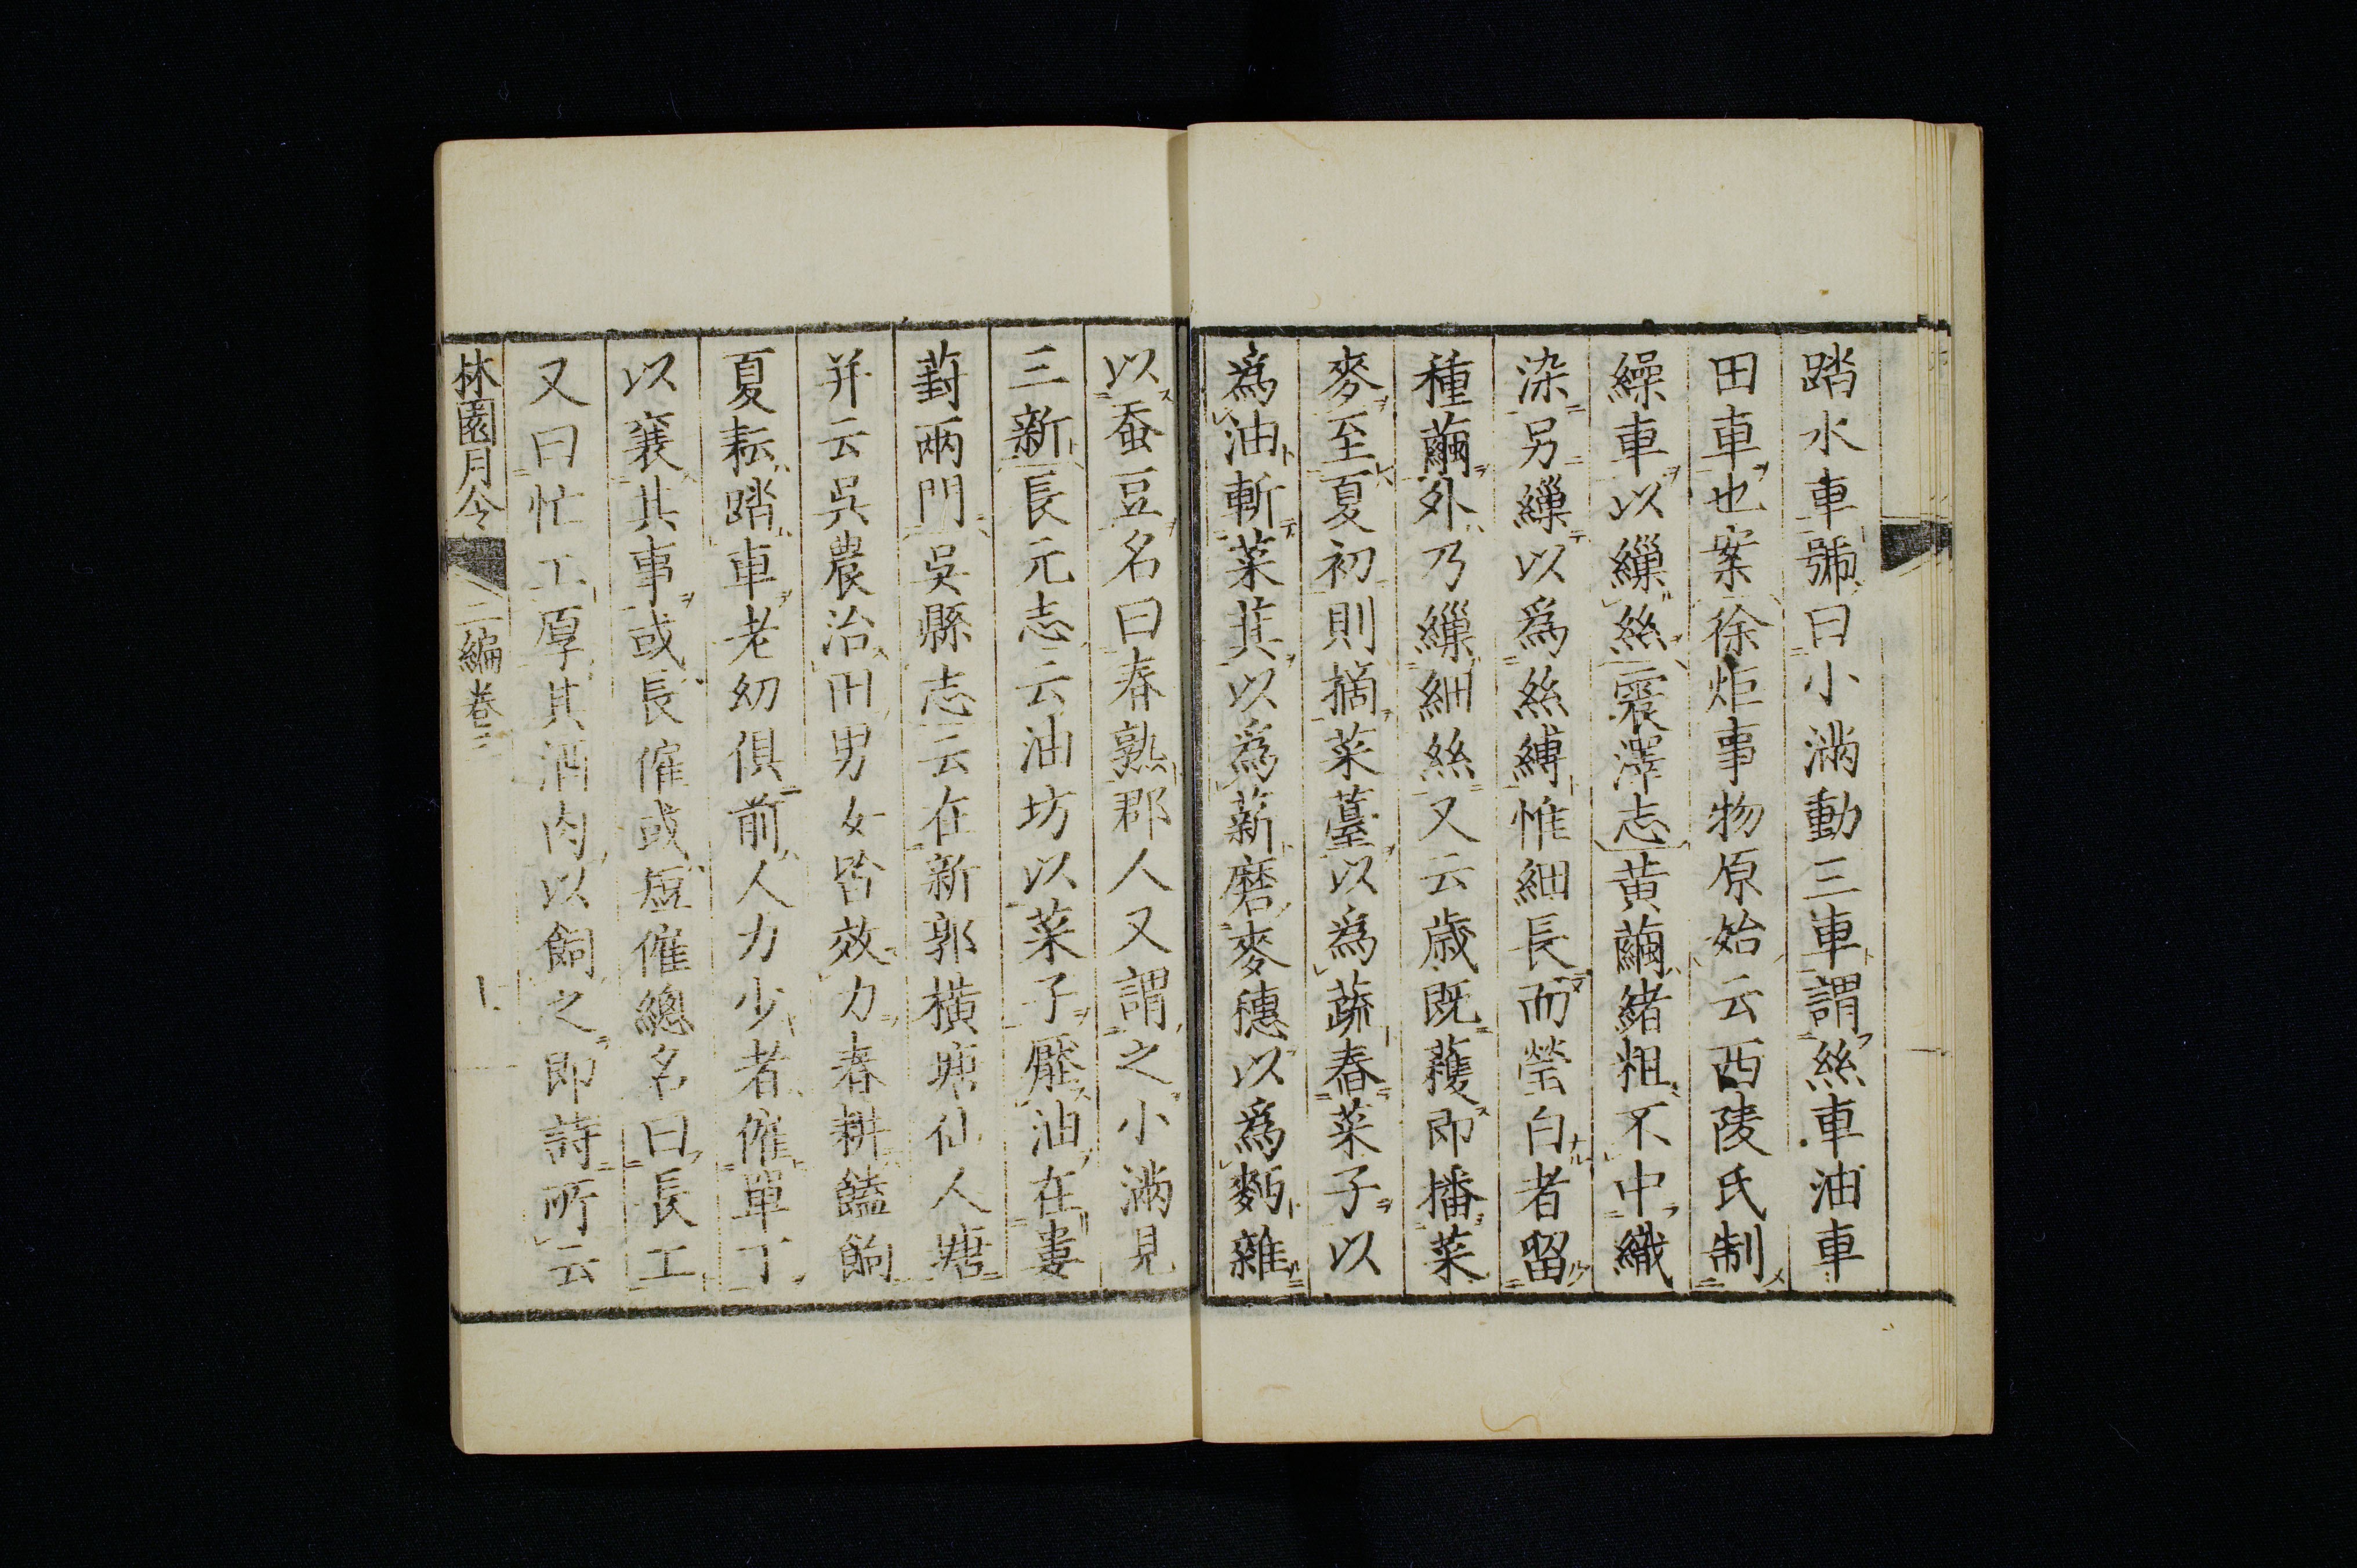 踏水車號曰小滿動三車謂絲車油車
田車也案徐炬事物原始云西陵氏制
繰車以繅絲震澤志黄繭緒粗不中織
染另繅以爲絲縛惟細長而瑩白者留
種繭外乃繅細絲又云歳既蒦即播菜
麥至夏初則摘菜薹以爲蔬舂菜子以
爲油斬菜萁以爲薪磨麥穗以爲麪雜
以蚕豆名曰春熟郡人又謂之小滿見
三新長元志云油坊以菜子壓油在婁
葑兩門吳縣志云在新郭橫塘仙人塘
并云吳農治田男女皆效力春耕饁餉
夏耘踏車老幼俱前人力少者僱單丁
以襄其事或長僱或短僱總名曰長工
又曰忙工厚其酒肉以飼之即詩所云
林園月令 二編卷三